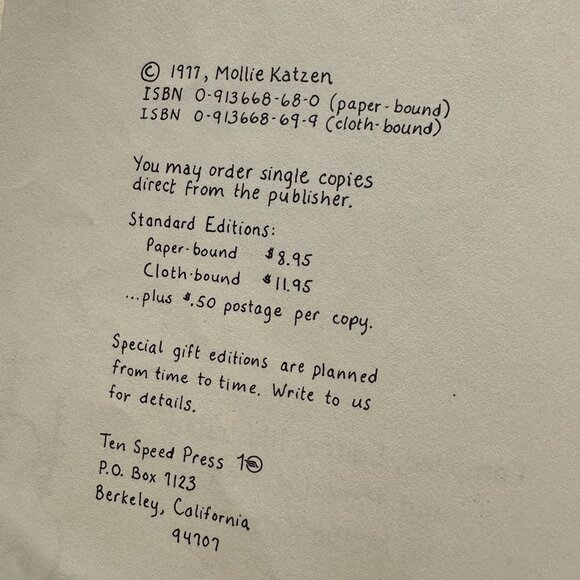 © 1977, Mollie Katzen
ISBN 0-913668-68-0 (paper-bound)
ISBN 0-913668-69-9 (cloth-bound)
You may order single copies
direct from the publisher.
Standard Editions:
Paper-bound $8.95
Cloth-bound $11.95
...plus $.50 postage per copy.
Special gift editions are planned
from time to time. Write to us
for details.
Ten Speed Press 10
P.O. Box 7123
Berkeley, California
94707